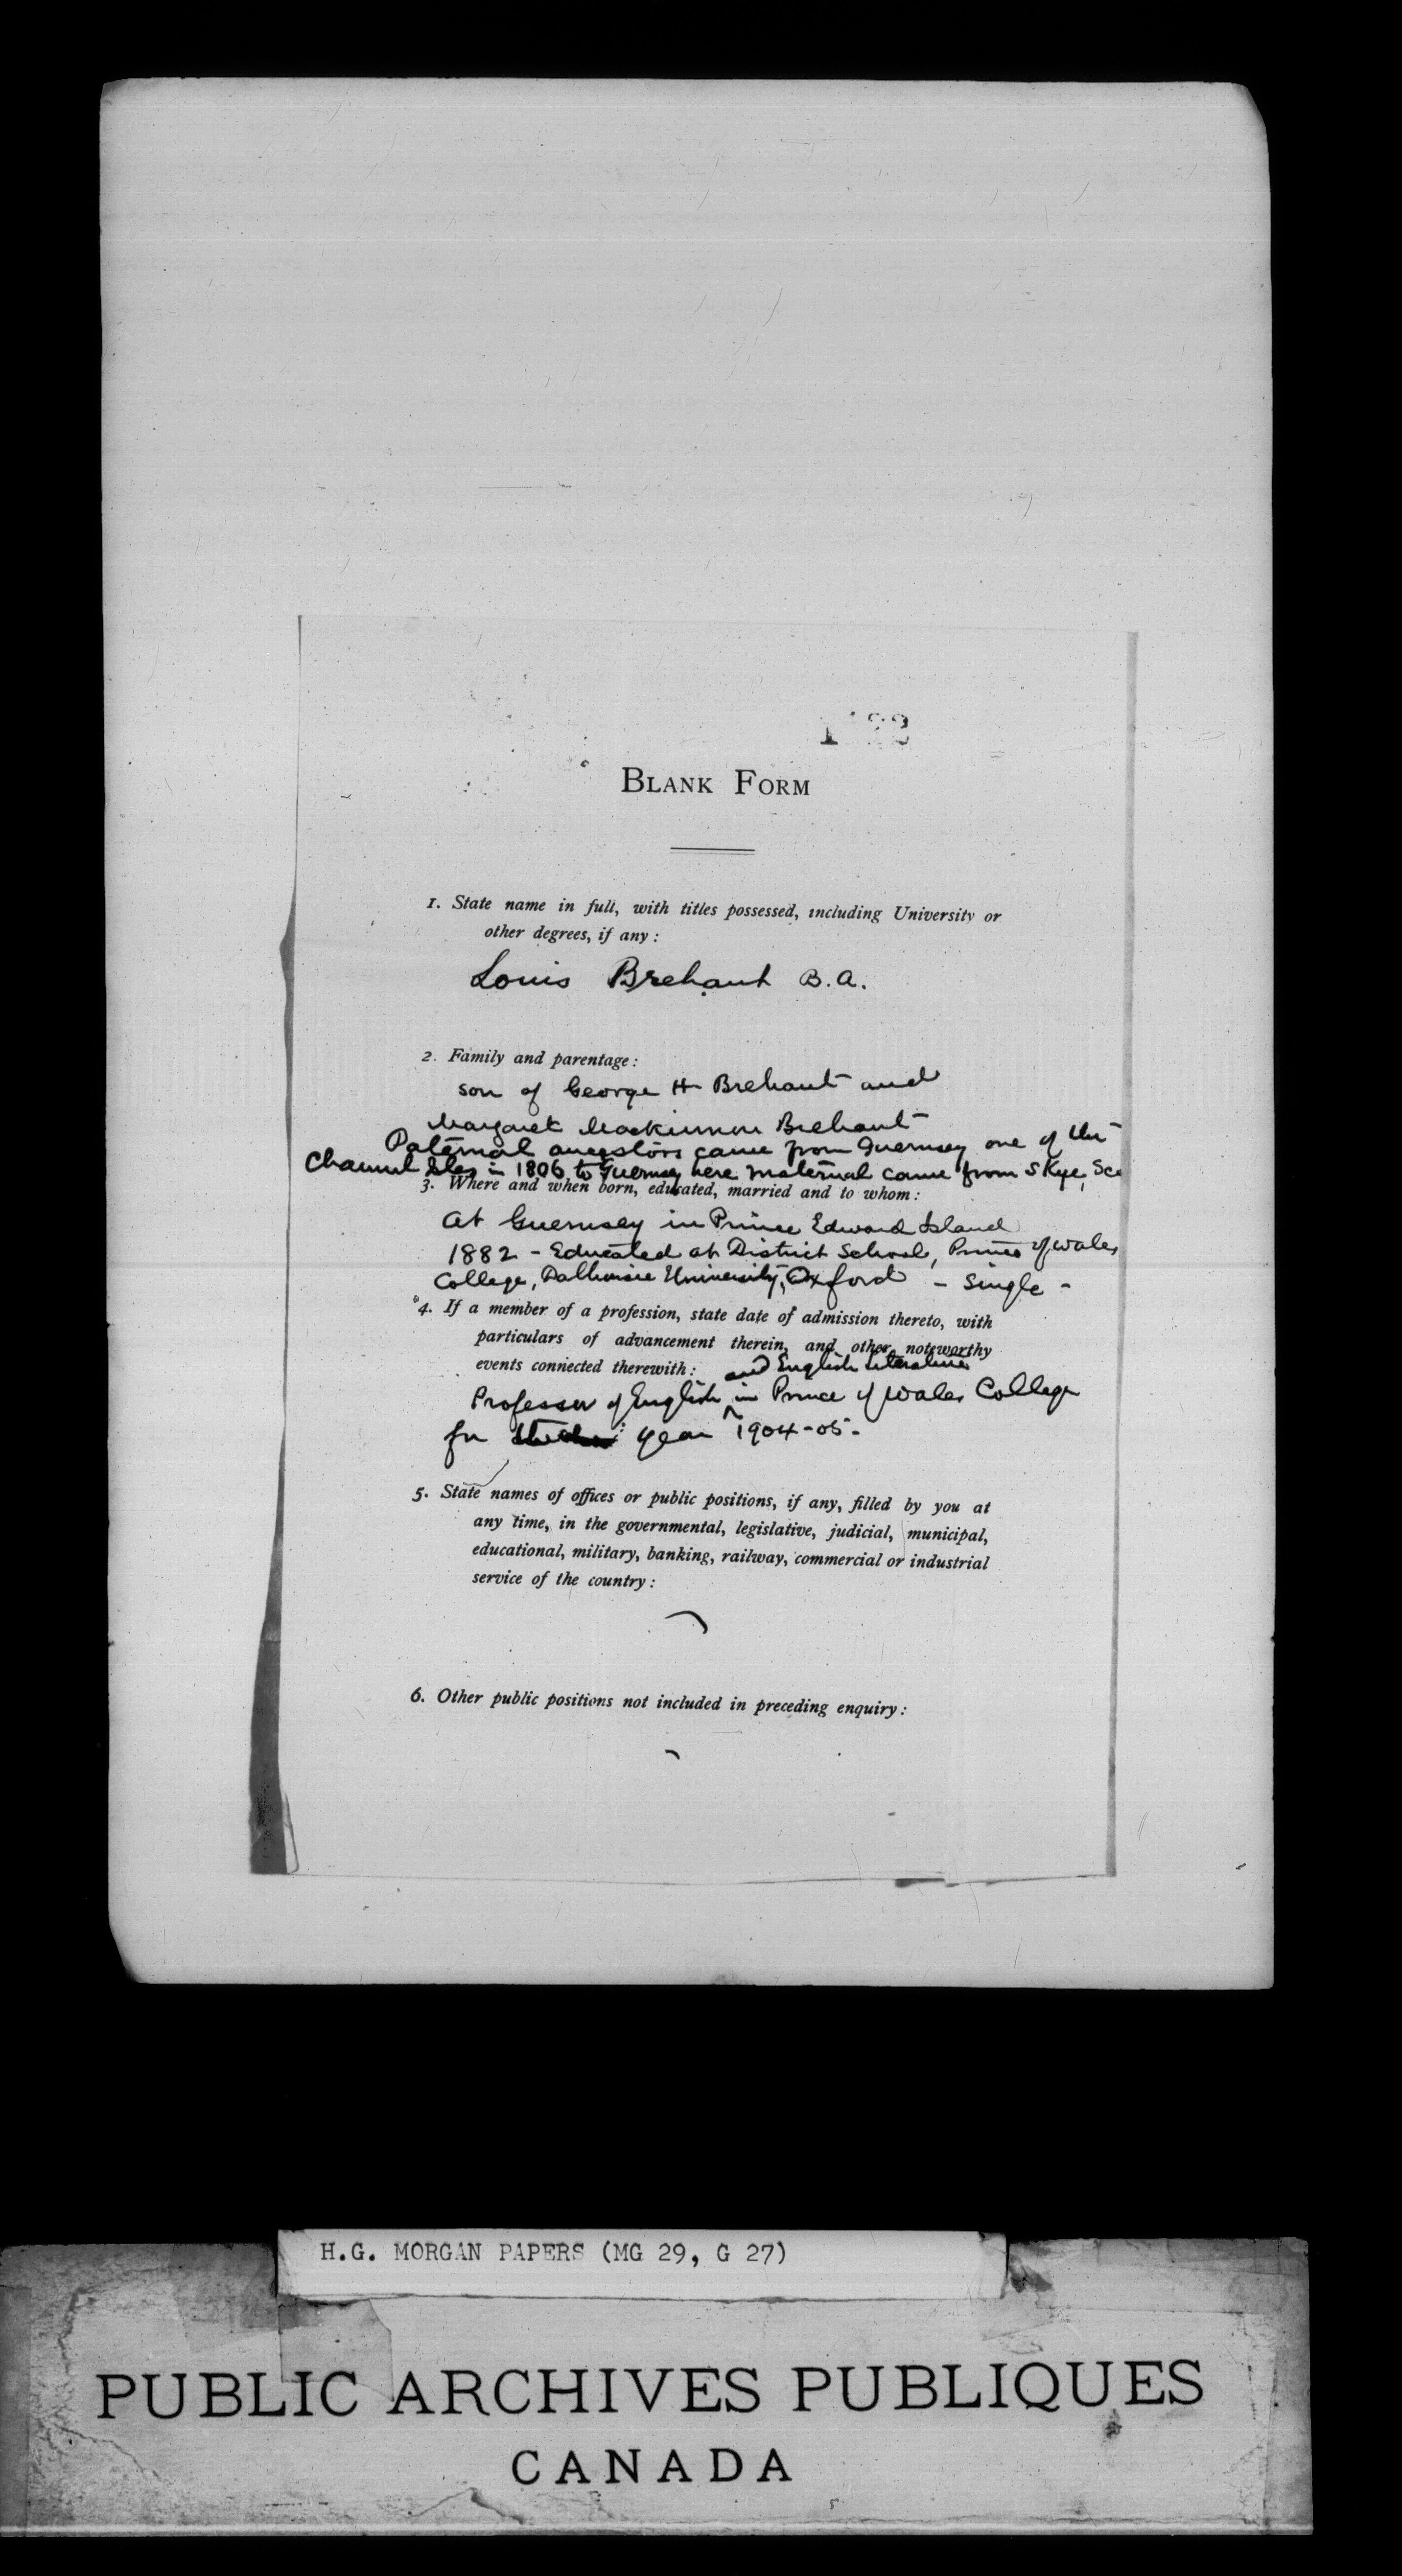 BLANK FORM
1. State name in full, with titles possessed, including University or
other degrees, if any :
Louis Brehaut B.A.
2. Family and parentage :
son of George H Brehaut and
Margaret MacKinnon Brehaut
Paternal ancestors came from Guernsey one of the
Channel Isles in 1806 to Guernsey here maternal came from Skye, Sco
3. Where and when born, educated, married and to whom :
At Guernsey in Prince Edward Island
1882 - Educated at District School, Prince of Wales
College, Dalhousie University, Oxford - Single -
4. If a member of a profession, state date of admission thereto, with
particulars of advancement therein, and other noteworthy
events connected therewith :
and English Literature
Professor of English ^ in Prince of Wales College
for year 1904-05-
5. State names of offices or public positions, if any, filled by you at
any time, in the governmental, legislative, judicial, municipal,
educational, military, banking, railway, commercial or industrial
service of the country :
6. Other public positions not included in preceding enquiry :
H.G. MORGAN PAPERS (MG 29, G 27)
PUBLIC ARCHIVES PUBLIQUES
CANADA